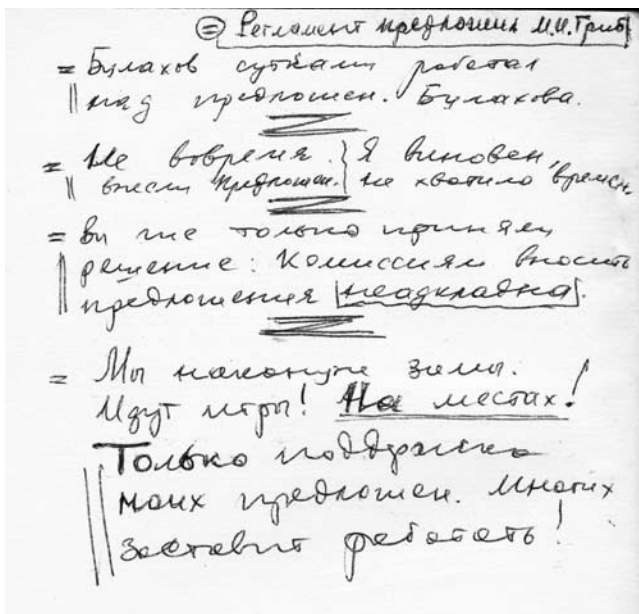 = Регламент предложения М.И. Гриб
= Булахов сутками работал
над предложен. Булахова.
= Не вовремя. } Я виновен,
внесли предложен. не хватило времен.
= Вы же только приняли
решение: Комиссиям вносить
предложения неадкладна.
= Мы накануне зимы.
Идут игры! На местах!
Только поддержка
моих предложен. Многих
заставит работать!